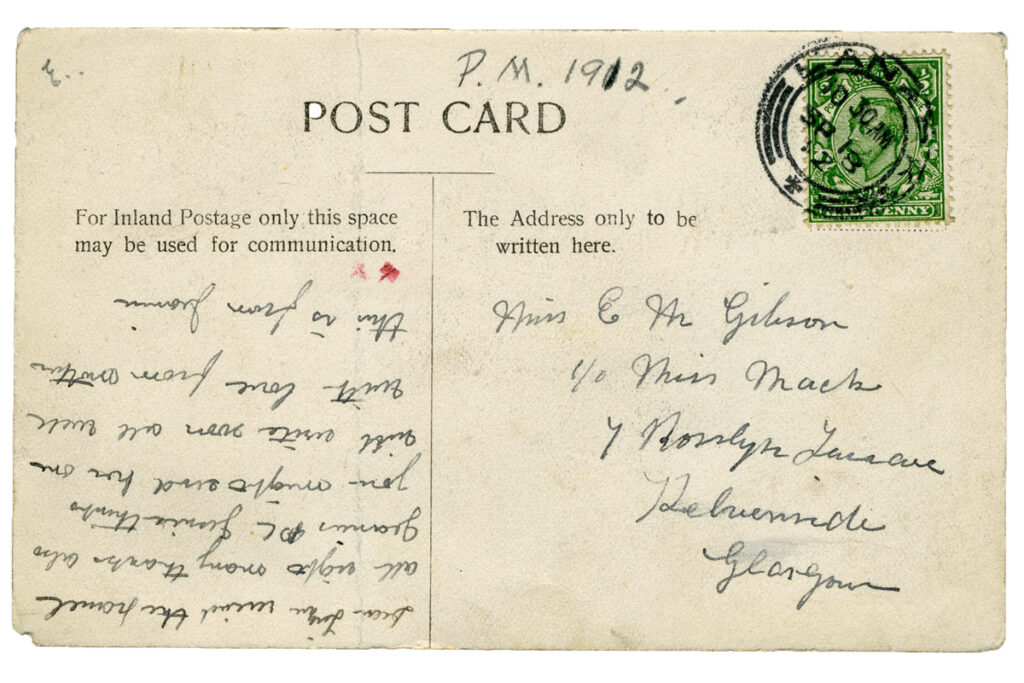 P. M. 1912
POST CARD
LANARK
10 30 AM
SP 18
12
PENNY
For Inland Postage only this space
may be used for communication.
The Address only to be
written here.
Miss E M Gibson
c/o Miss Mack
7 Rosslyn Terrace
Kelvinside
Glasgow
Dear received the parcel
all right many thanks also
Jeanie's PC Jeanie thinks
you might send her one
will write soon all well
with love from Mother
this is from Jeannie